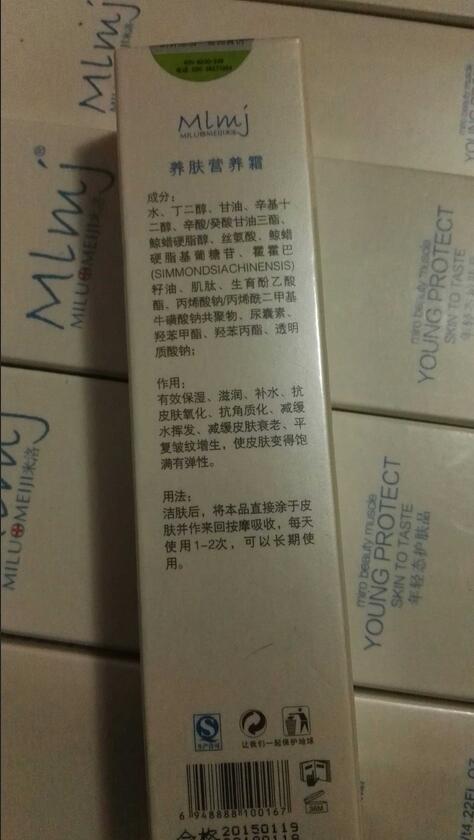 Mlmj
MILU MEIJI米洛
养肤营养霜
成分：
水、丁二醇、甘油、辛基十
二醇、辛酸/癸酸甘油三酯、
鲸蜡硬脂醇、丝氨酸、鲸蜡
硬脂基葡糖苷、霍霍巴
(SIMMONDSIACHINENSIS)
籽油、肌肽、生育酚乙酸
酯、丙烯酸钠/丙烯酰二甲基
牛磺酸钠共聚物、尿囊素、
羟苯甲酯、羟苯丙酯、透明
质酸钠；
作用：
有效保湿、滋润、补水、抗
皮肤氧化、抗角质化、减缓
水挥发、减缓皮肤衰老、平
复皱纹增生，使皮肤变得饱
满有弹性。
用法：
洁肤后，将本品直接涂于皮
肤并作来回按摩吸收，每天
使用1-2次，可以长期使
用。
生产许可
让我们一起保护地球
36M
6 948888 100167
合格 20150119
Mlmj
Mlmj®
MILU MEIJI米洛
MILU MEIJI米洛
miro beauty muscle
YOUNG PROTECT
SKIN TO TASTE
miro beauty muscle
YOUNG PROTECT
SKIN TO TASTE
年轻态护肤品